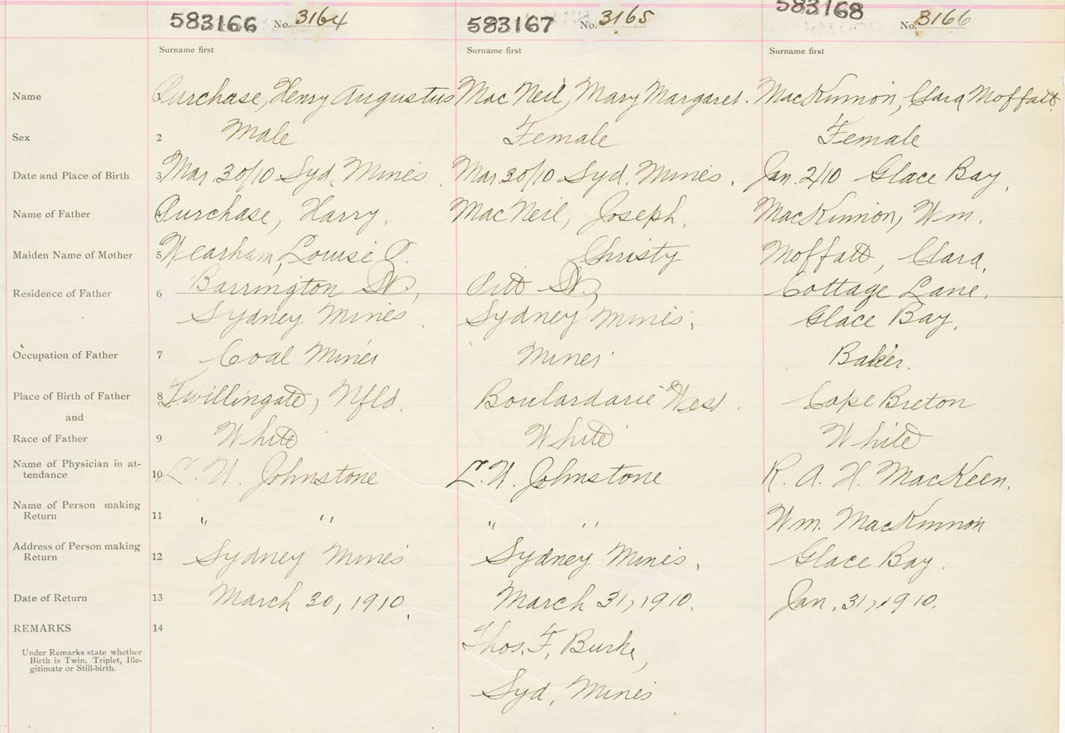 583166 No. 3164 583167 No. 3165 583168 No. 3166
Surname first Surname first Surname first
Name 1 Purchase, Henry Augustus MacNeil, Mary Margaret. MacKinnon, Clara Moffatt.
Sex 2 Male Female Female
Date and Place of Birth 3 Mar. 30/10 Syd. Mines. Mar. 30/10 Syd. Mines. Jan. 2/10 Glace Bay.
Name of Father 4 Purchase, Harry. MacNeil, Joseph. MacKinnon, Wm.
Maiden Name of Mother 5 Wearham, Louise P. Christy Moffatt, Clara.
Residence of Father 6 Barrington St, Pitt St, Cottage Lane.
Sydney Mines. Sydney Mines. Glace Bay.
Occupation of Father 7 Coal Miner Miner Baker.
Place of Birth of Father 8 Twillingate, Nfld. Boulardarie West. Cape Breton
and
Race of Father 9 White White White
Name of Physician in at-
tendance 10 L. W. Johnstone L. W. Johnstone R. A. H. MacKeen.
Name of Person making
Return 11 " " " " Wm. MacKinnon
Address of Person making
Return 12 Sydney Mines Sydney Mines. Glace Bay.
Date of Return 13 March 30, 1910. March 31, 1910. Jan. 31, 1910.
REMARKS 14
Under Remarks state whether
Birth is Twin, Triplet, Ille-
gitimate or Still-birth.
Thos. F. Burke,
Syd. Mines